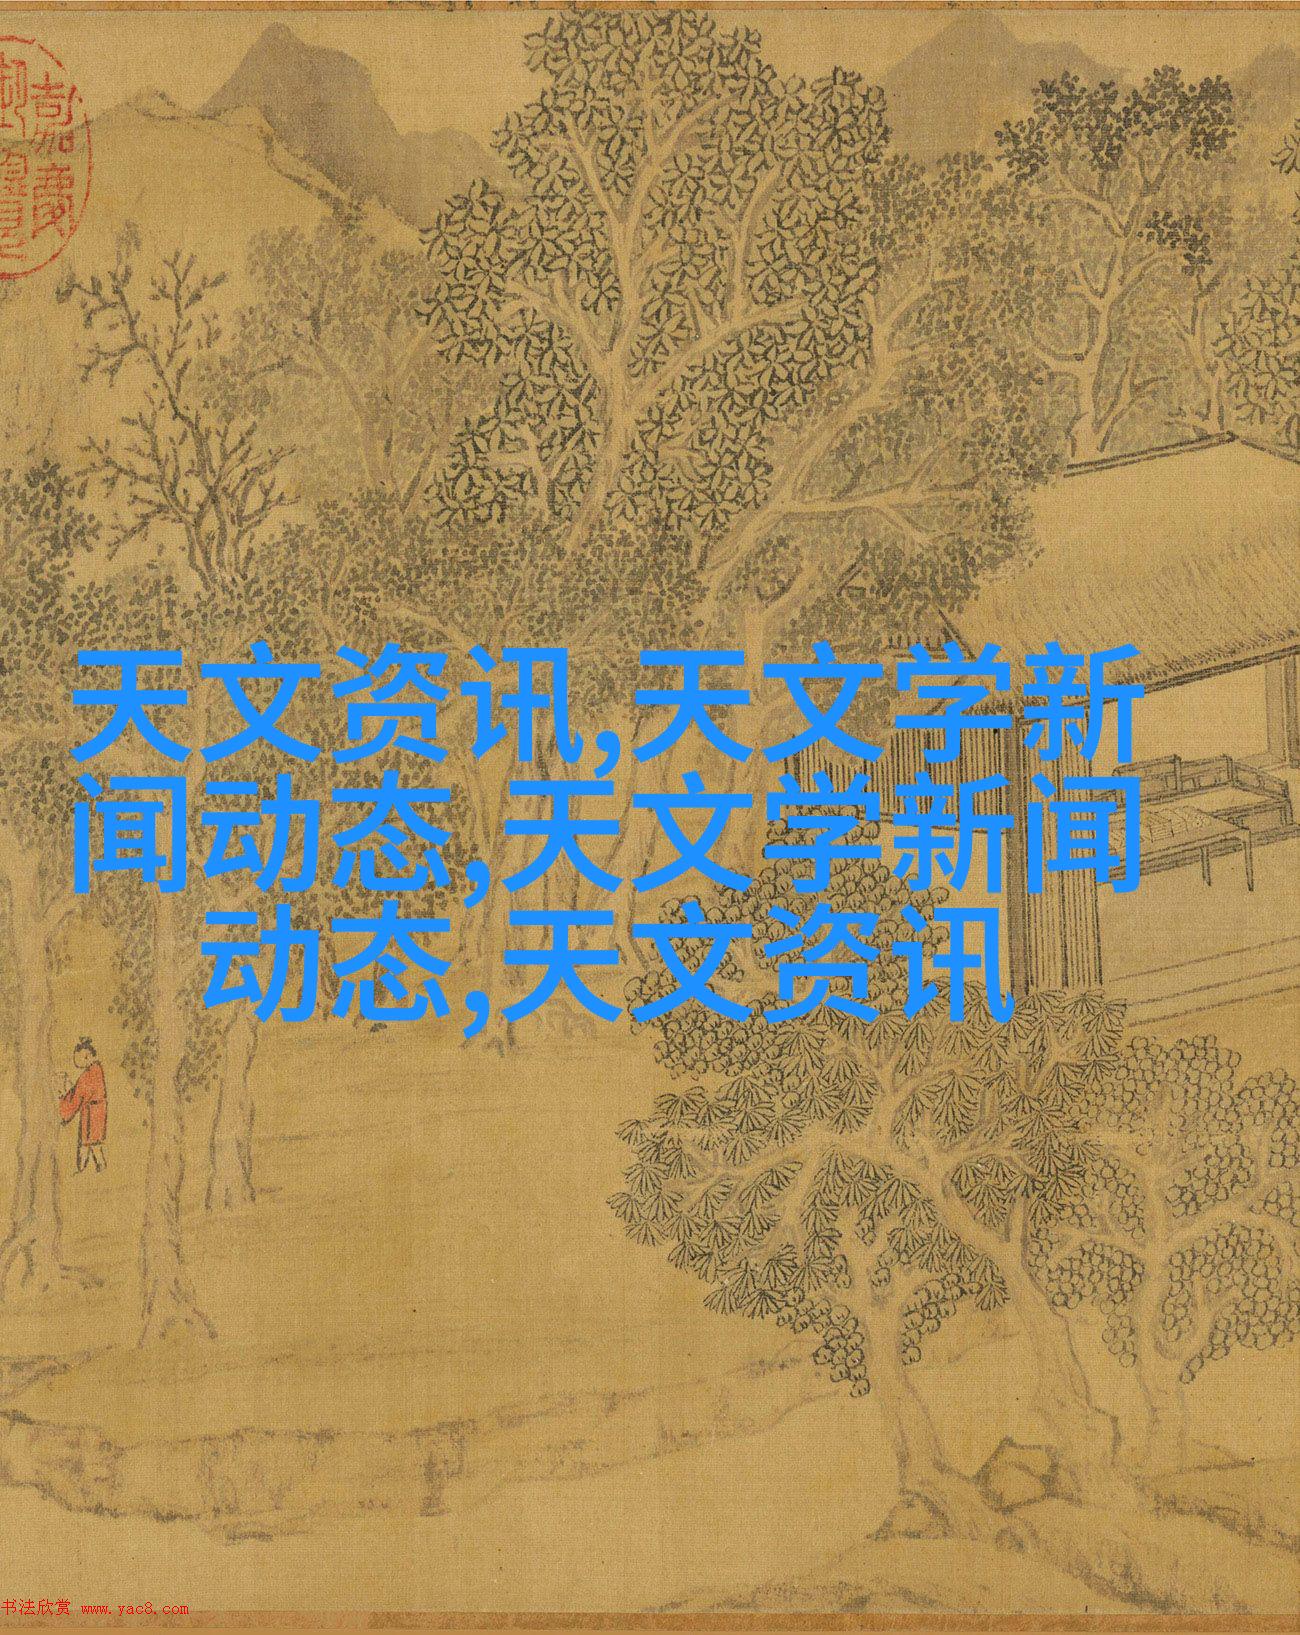 嘉慶
天文资讯,天文学新
闻动态,天文学新闻
动态,天文资讯
书法欣赏 www.yac8.com